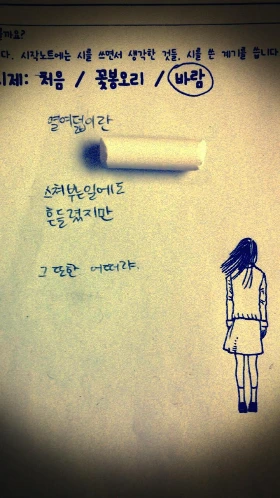 까요?
다. 시작노트에는 시를 쓰면서 생각한 것들, 시를 쓴 계기를 씁니다
시제: 처음 / 꽃봉오리 / 바람
열여덟이란
스쳐부는일에도
흔들렸지만
그 또한 어떠랴.